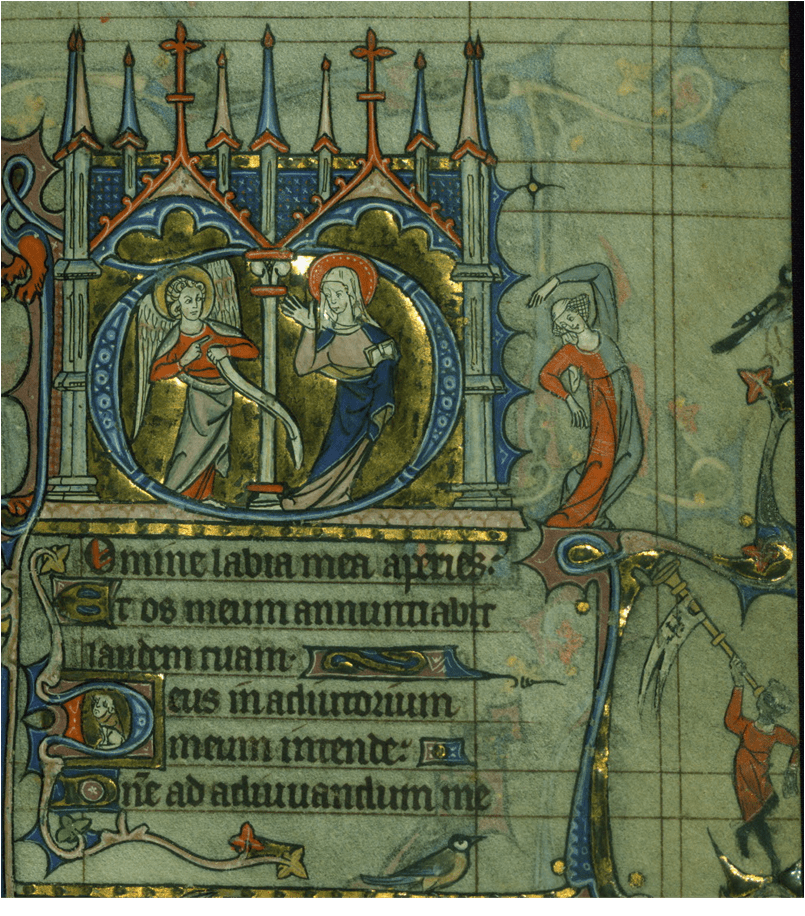 DOmine labia mea aperies:
Et os meum annuntiabit
laudem tuam.
Deus in adiutorium
meum intende:
Dñe ad adiuuandum me